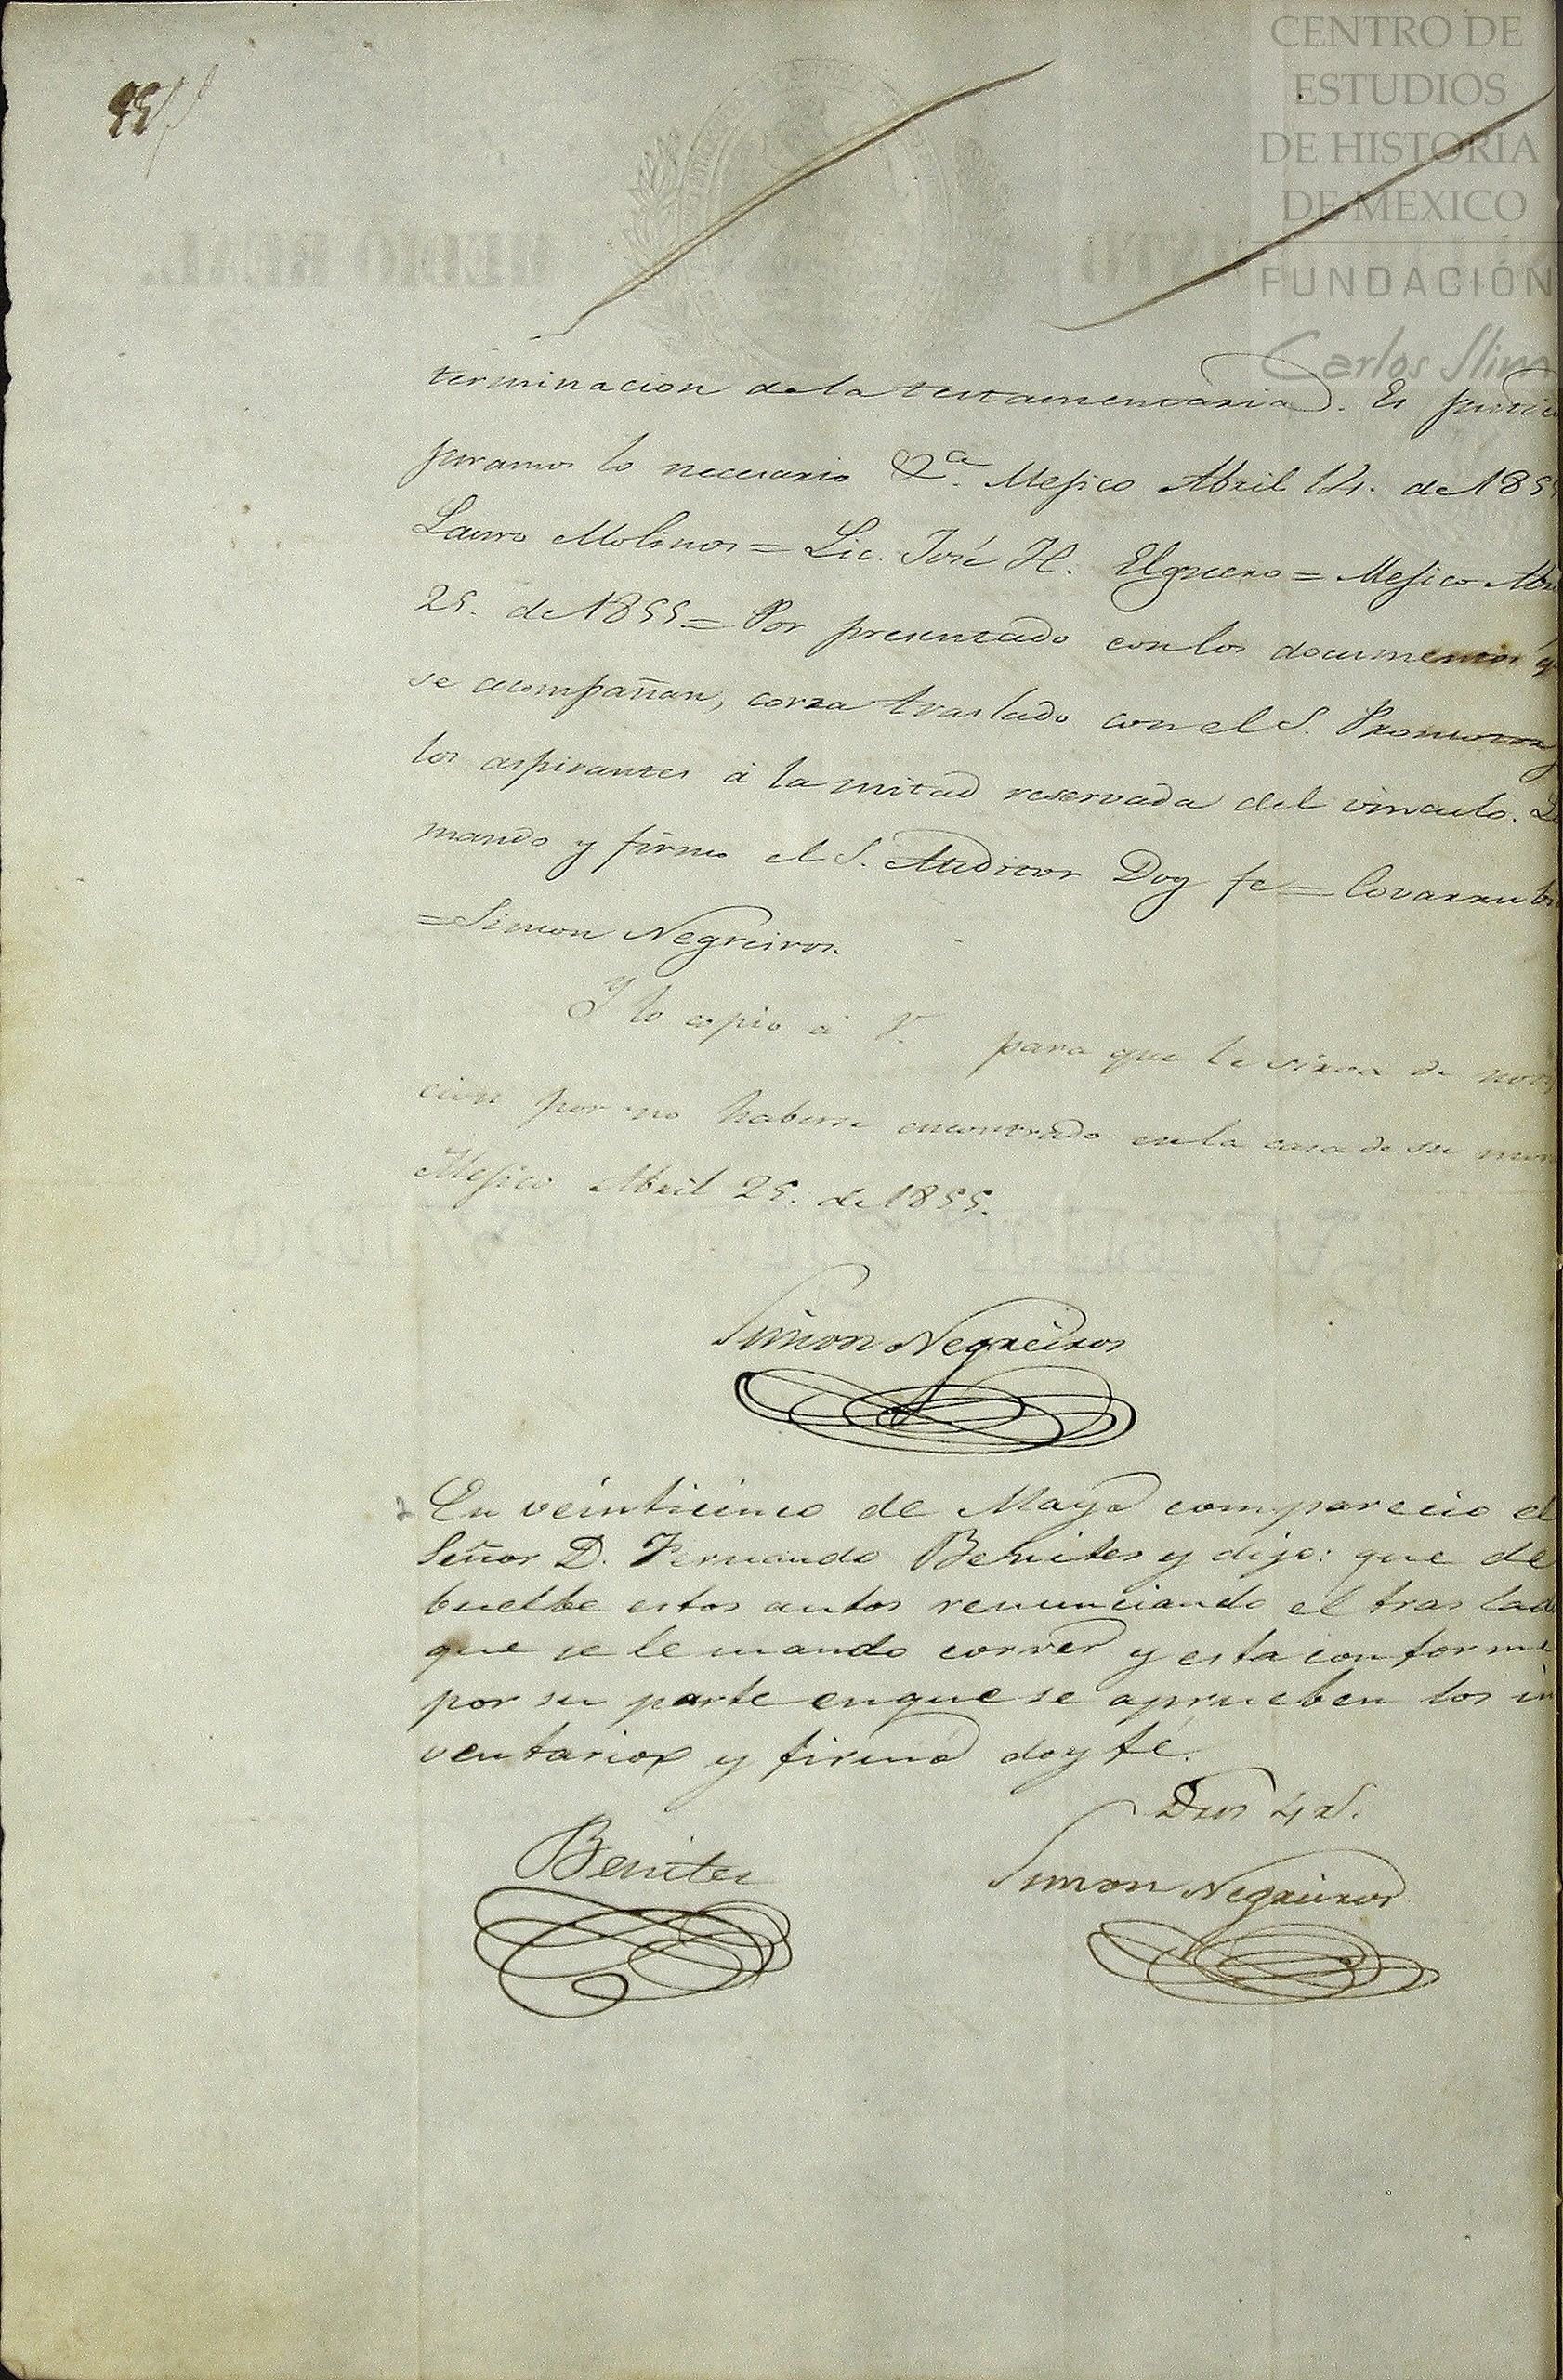 CENTRO DE
ESTUDIOS
DE HISTORIA
DE MEXICO
FUNDACIÓN
Carlos Slim
terminacion de la testamentaria. Es justici
juramos lo necesario &a. Mejico Abril 14. de 185
Lauro Molinos = Lic. José H. Elguero = Mejico Abri
25. de 1855 = Por presentado con los documentos q
se acompañan, corra traslado con el S. Promotor y
los aspirantes á la mitad reservada del vinculo. Lo
mando y firmo el S. Auditor Doy fe = Covarrubi
= Simon Negreiros.
Y lo copio á V. para que le sirva de noti
cion por no haberse encontrado en la casa de su mor
Mejico Abril 25. de 1855.
Simon Negreiros
En veinticinco de Mayo comparecio el
Señor D. Fernando Benites y dijo: que de
buelbe estos autos renunciando el traslad
que se le mando correr y esta conforme
por su parte en que se aprueben los in
ventarios y firmó doy fé.
Dros 4 rs.
Benites
Simon Negreiros